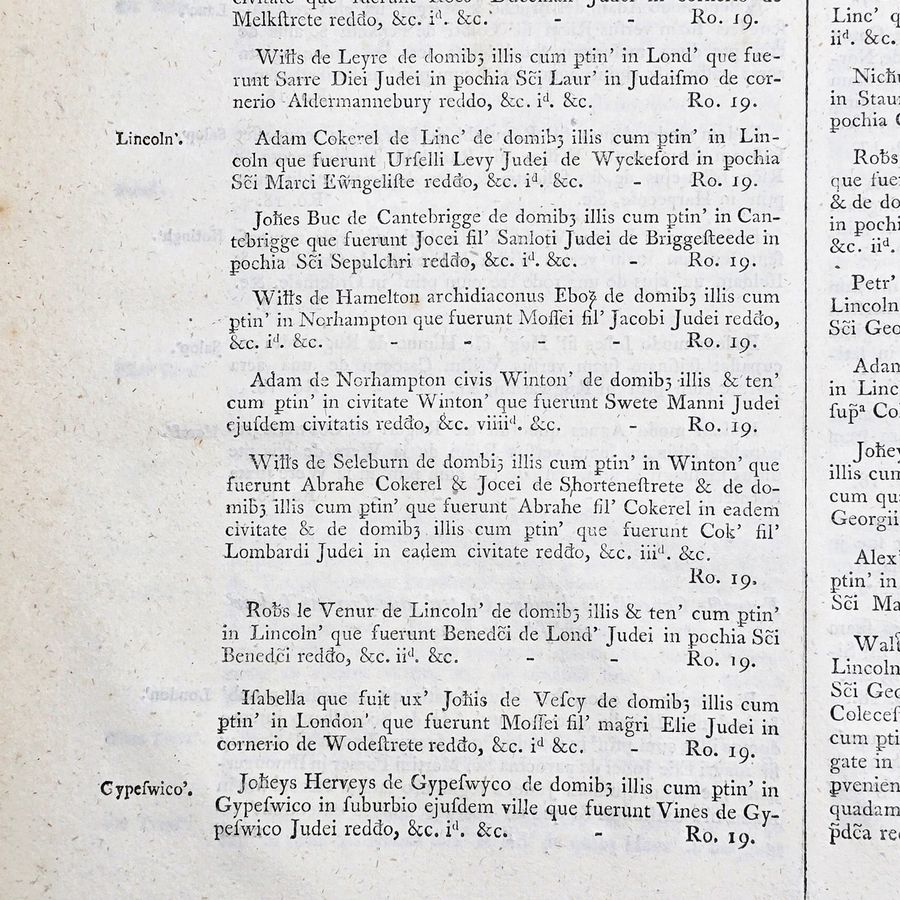 Melkſtrete reddo, &c. iᵈ. &c. - - Ro. 19.
Wiłłs de Leyre de domibȝ illis cum ꝑtin’ in Lond’ que fue-
runt Sarre Diei Judei in ꝑochia Sc̃i Laur’ in Judaiſmo de cor-
nerio Aldermannebury reddo, &c. iᵈ. &c. Ro. 19.
Lincoln’.
Adam Cokerel de Linc’ de domibȝ illis cum ꝑtin’ in Lin-
coln que fuerunt Urſelli Levy Judei de Wyckeford in ꝑochia
Sc̃i Marci Ew̃ngeliſte reddo, &c. iᵈ. &c. - Ro. 19.
Joħes Buc de Cantebrigge de domibȝ illis cum ꝑtin’ in Can-
tebrigge que fuerunt Jocei fil’ Sanloti Judei de Briggeſteede in
ꝑochia Sc̃i Sepulchri reddo, &c. iᵈ. &c. - Ro. 19.
Wiłłs de Hamelton archidiaconus Eboꝝ de domibȝ illis cum
ꝑtin’ in Norhampton que fuerunt Moſſei fil’ Jacobi Judei reddo,
&c. iᵈ. &c. - - - - Ro. 19.
Adam de Norhampton civis Winton’ de domibȝ illis & ten’
cum ptin’ in civitate Winton’ que fuerunt Swete Manni Judei
ejuſdem civitatis reddo, &c. viiiiᵈ. &c. - Ro. 19.
Wiłłs de Seleburn de dombiȝ illis cum ptin’ in Winton’ que
fuerunt Abrahe Cokerel & Jocei de Shorteneſtrete & de do-
mibȝ illis cum ꝑtin’ que fuerunt Abrahe fil’ Cokerel in eadem
civitate & de domibȝ illis cum ptin’ que fuerunt Cok’ fil’
Lombardi Judei in eadem civitate reddo, &c. iiiᵈ. &c.
Ro. 19.
Roƀs le Venur de Lincoln’ de domibȝ illis & ten’ cum ꝑtin’
in Lincoln’ que fuerunt Benedc̃i de Lond’ Judei in pochia Sc̃i
Benedc̃i reddo, &c. iiᵈ. &c. - - Ro. 19.
Iſabella que fuit ux’ Joħis de Veſcy de domibȝ illis cum
ꝑtin’ in London’ que fuerunt Moſſei fil’ mag̃ri Elie Judei in
cornerio de Wodeſtrete reddo, &c. iᵈ &c. - Ro. 19.
Gypeſwico’.
Joħeys Herveys de Gypeſwyco de domibȝ illis cum ptin’ in
Gypeſwico in ſuburbio ejuſdem ville que fuerunt Vines de Gy-
peſwico Judei reddo, &c. iᵈ. &c. - Ro. 19.
Linc’
iiᵈ. &c.
in
pochia
Roƀs
que
& de
in
&c. iiᵈ.
Petr’
Lincoln
Sc̃i
in
illis
cum
Alex’
ptin’ in
Sc̃i
Lincoln
Sc̃i
cum
gate in
quadam
p̃dc̃a